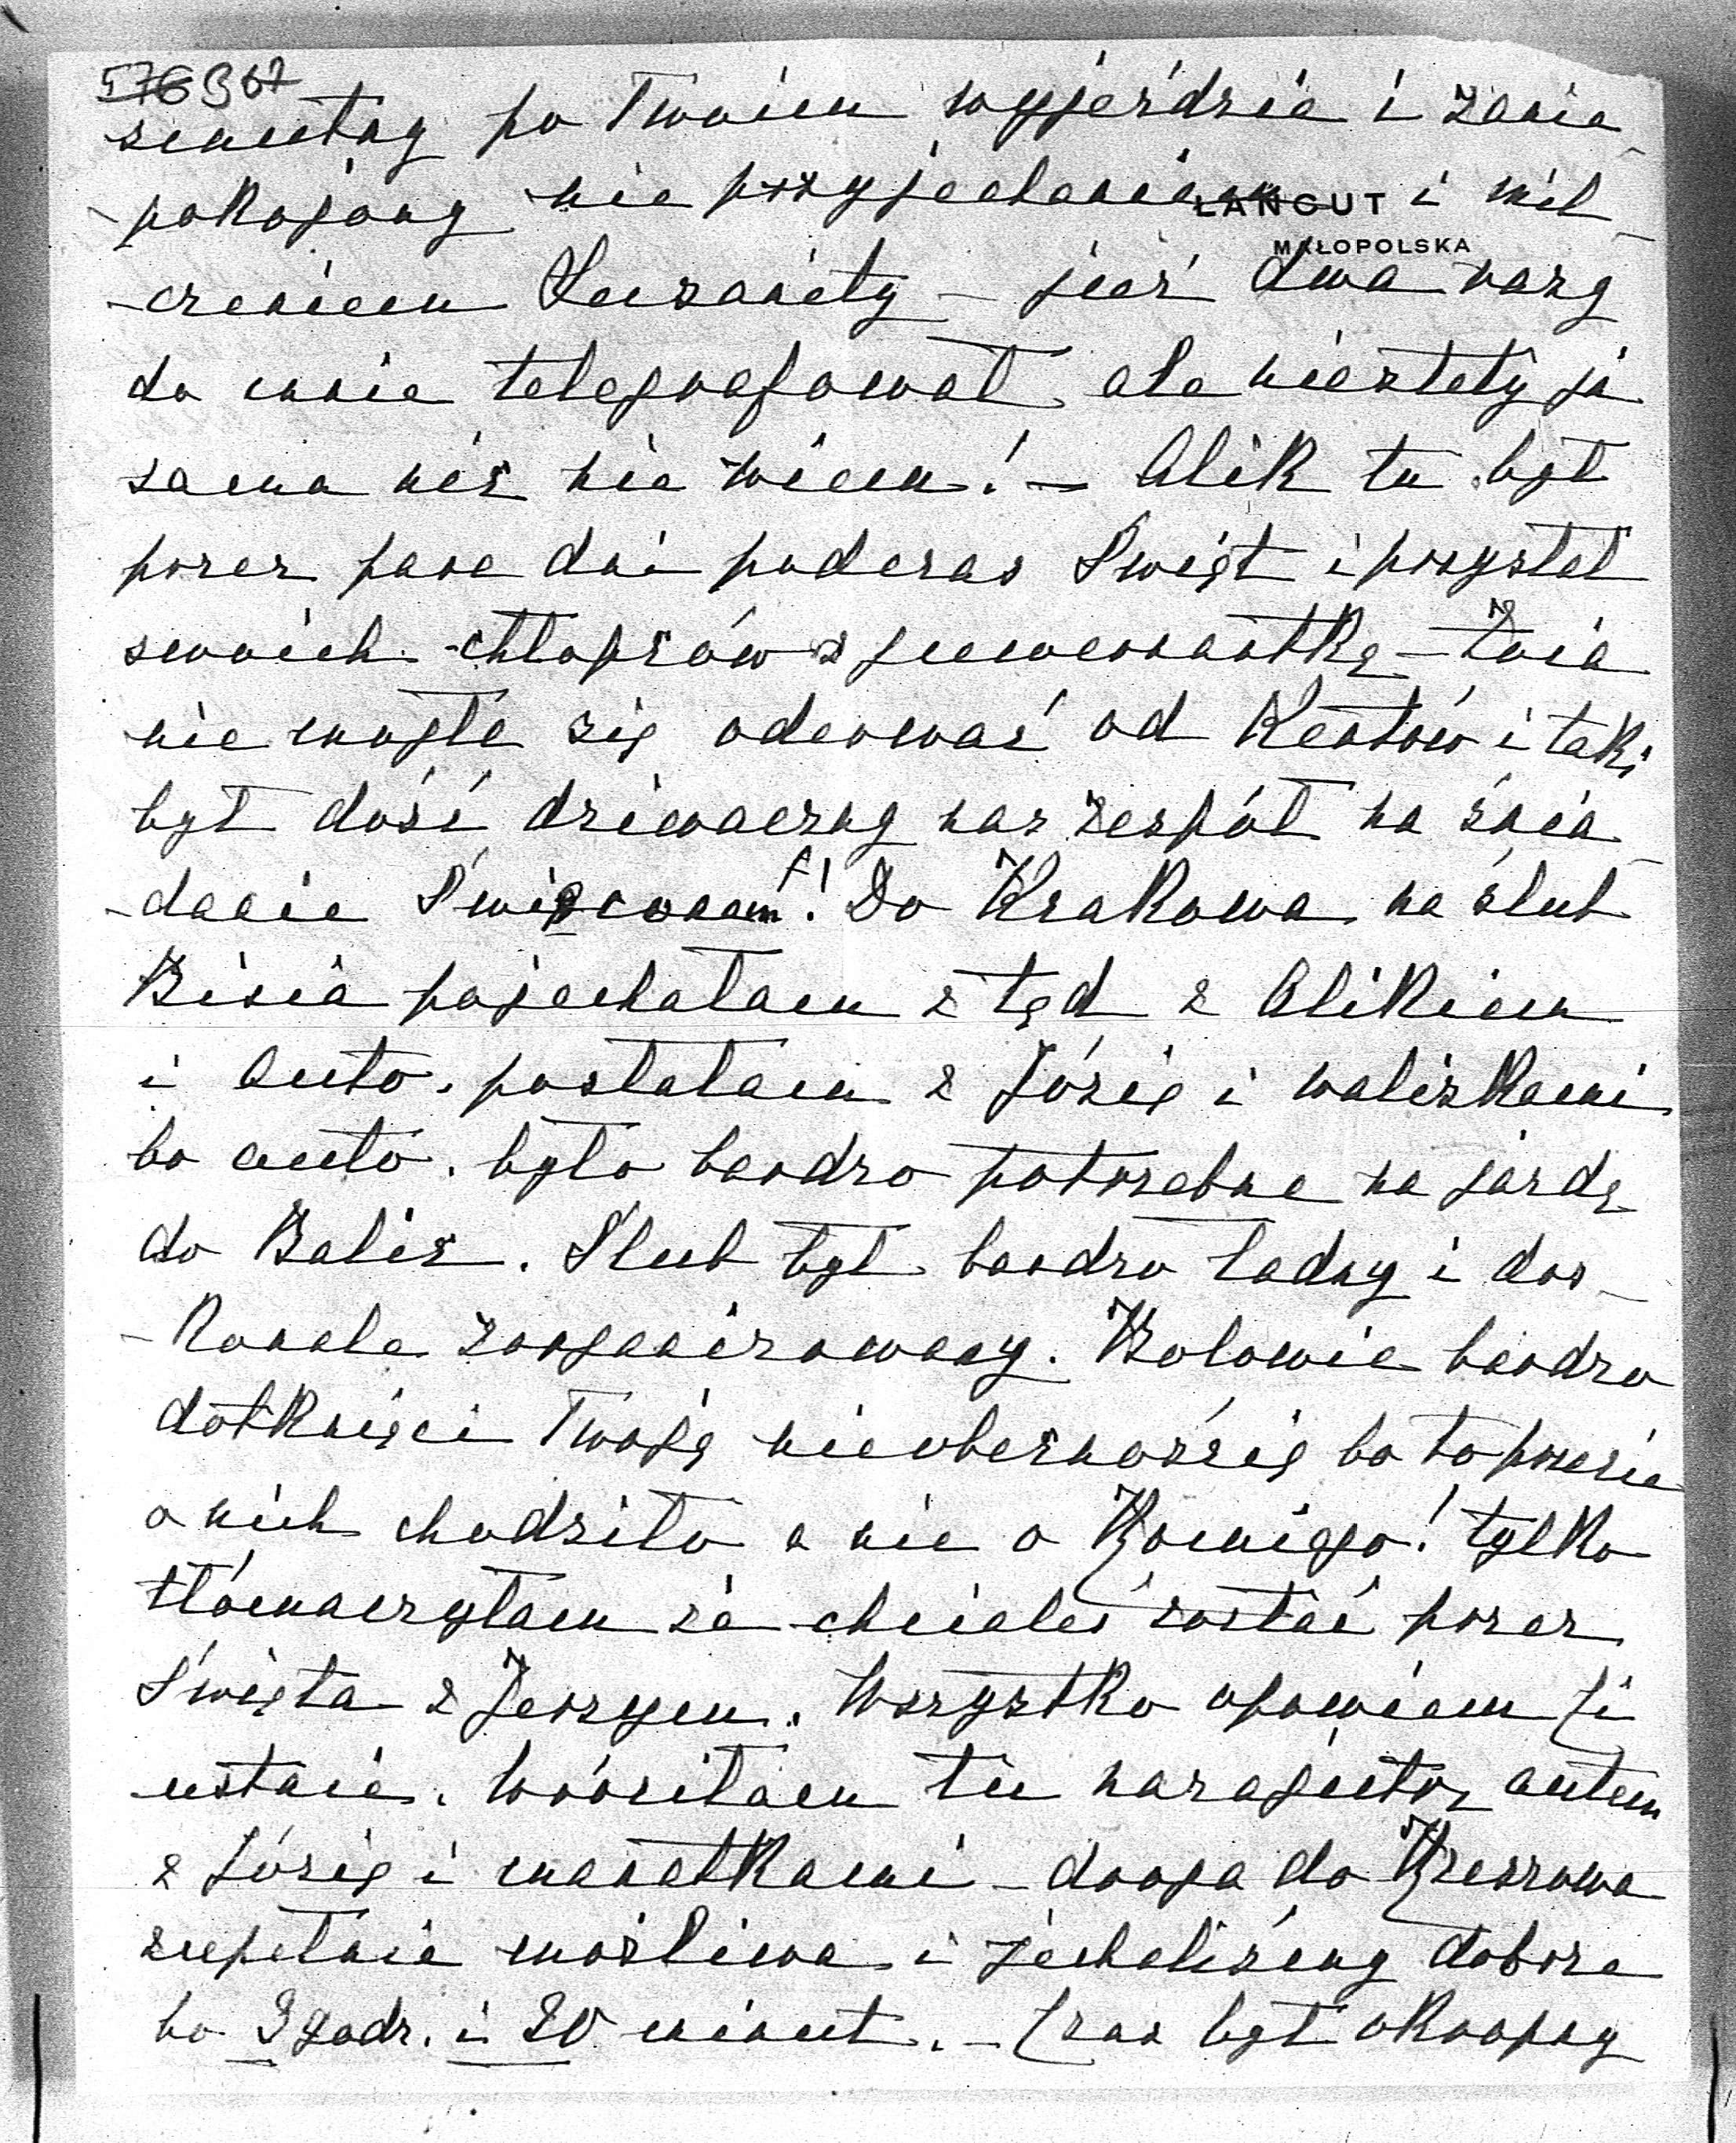 576 367
smutny po Twoim wyjeździe i zanie-
-pokojony nie przyjechaniem i mil-
ŁAŃCUT
MAŁOPOLSKA
-czeniem Luzanety – już dwa razy
do mnie telegrafował, ale niestety ja
sama nic nie wiem! – Alik tu był
przez parę dni podczas Świąt i przysłał
swoich chłopców z guwernantką –
nie mogła się oderwać od Kentów i taki
był dość dziwaczny nasz zespół na śnia-
-daniu Święconem! Do Krakowa na ślub
Bisia pojechałam z tąd z Alikiem
i auto. posłałam z Józią i walizkami
bo auto. było bardzo potrzebne na jazdę
do Balic. Ślub był bardzo ładny i dos-
-konale zorganizowany. Bolowie bardzo
dotknięci Twoją nieobecnością bo to przecie
o nich chodziło a nie o Romięgo! tylko
tłómaczyłam że chciałeś zostać przez
Święta z Jerzym. Wszystko opowiem Ci
ustnie. Wróciłam tu nazajutrz autem
z Józią i manatkami – droga do Rzeszowa
zupełnie możliwa i jechaliśmy dobrze
bo 3 godz. i 20 minut. – Czas był okropny